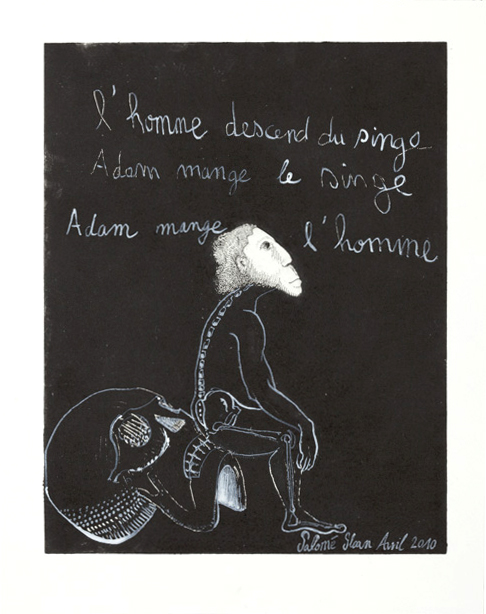 l'homme descend du singe
Adam mange le singe
Adam mange l'homme
Salomé Sloan Avril 2010